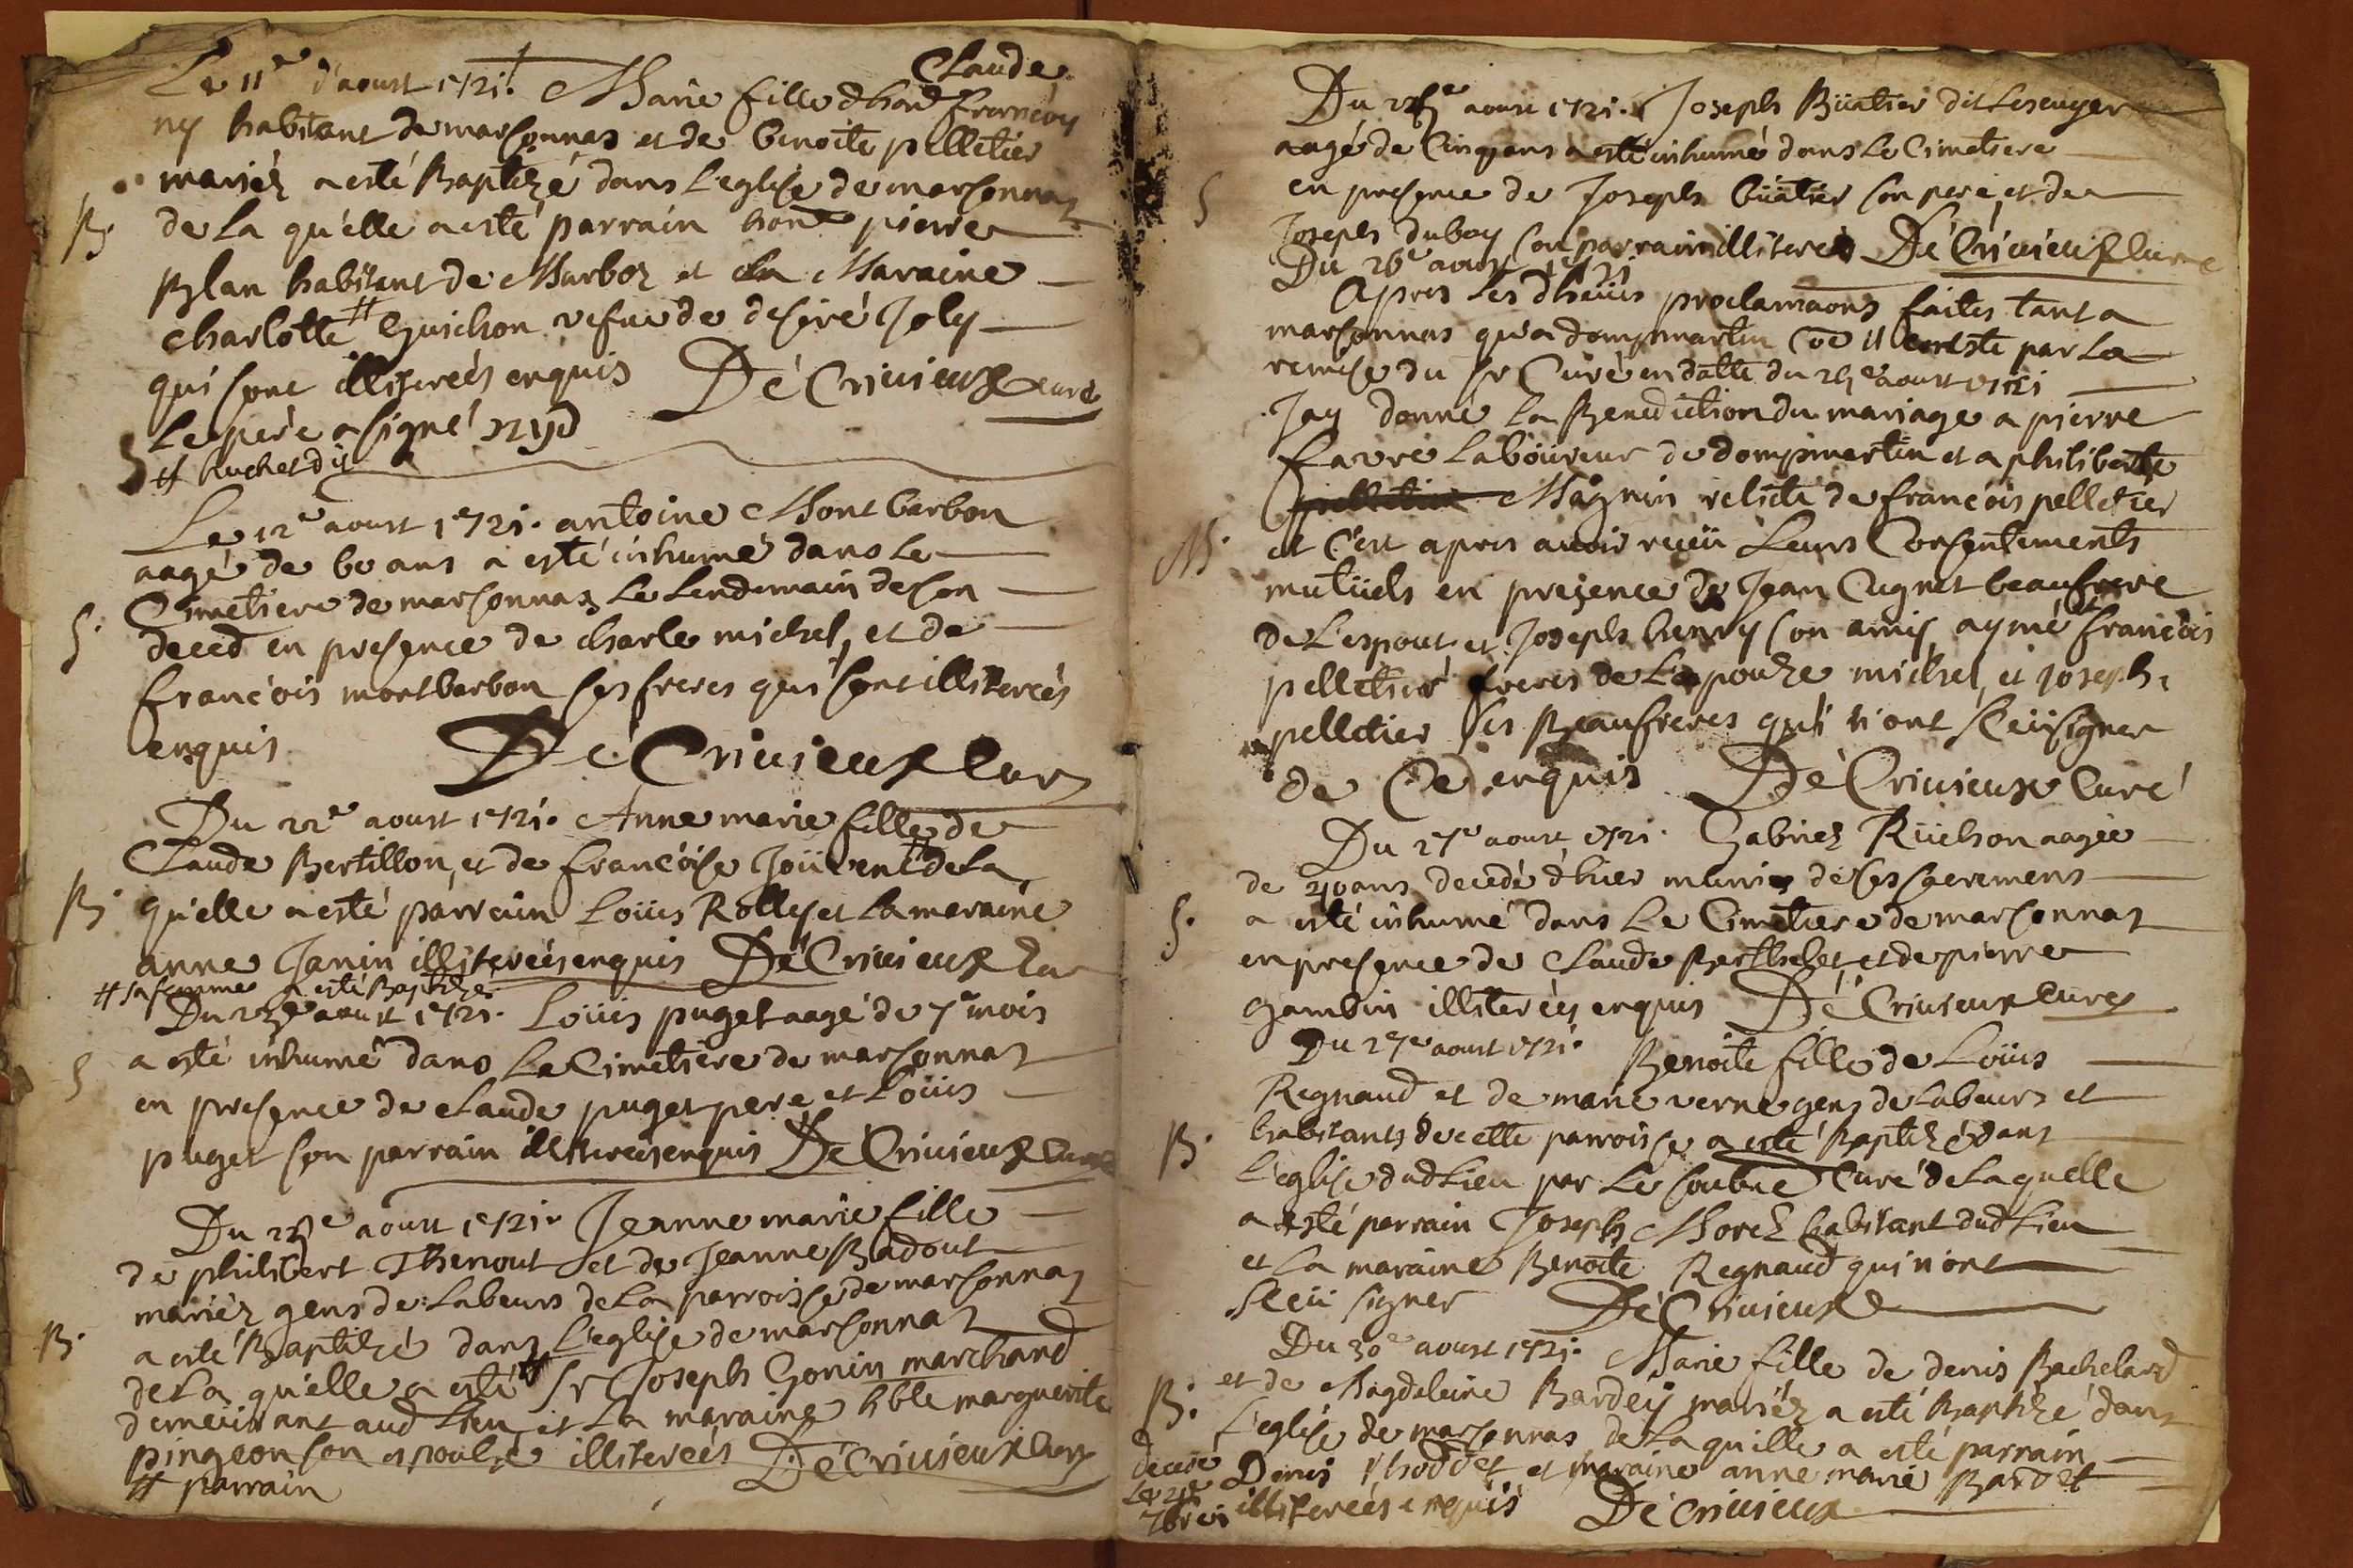 Claude
Le 11e d'aoust 1721. Marie fille dhond francoy
ny habitant de marsonnas et de benoite pelletier
mariéz a esté Baptizé dans L'eglise de marsonnaz
B. de La qu'elle a esté parrain hone pierre
Blan habitant de Marboz et La Maraine
charlotte # Guichon vefue de desiré Joly
qui sont illiterées enquis De Criuieux curé
Le père a signé
#
Le 12e aoust 1721. antoine Montbarbon
aagé de 60 ans a esté inhumé dans Le
Cimetiere de marsonnaz Le Lendemain de son
S. deced en presence de charle michel, et de
françois montbarbon ses freres qui sont illiterées
enquis De Criuieux Cure
Du 22e aoust 1721. Anne marie fille de
Claude Bertillon, et de françoise Joüvent # de La
B. qu'elle a esté parrain Loüis Rolley et La maraine
anne Janin illiterées enquis De Criuieux Cur
# sa femme a esté Baptizée
Du 23e aoust 1721. Loüis puget aagé de 7 mois
S a esté inhumé dans Le Cimetiere de marsonnaz
en presence de claude puget pere et Loüis
puget son parrain illiterées enquis De Criuieux Curé
Du 25e aoust 1721. Jeanne marie fille
de philibert Thenout et de Jeanne Badout
mariéz gens de Labeurs de La parroisse de marsonnaz
B. a esté Baptizé dans L'eglise de marsonnaz
de La qu'elle a esté # Sr Joseph Gonin marchand
demeürant aud Lieu, et La maraine hble marguerite
pingeon son espouse illiterées De Criuieux Cure
# parrain
Du 25e aoust 1721. Joseph Büatier dit
aagé de Cinq ans a esté inhumé dans Le Cimetiere
S en presence de Joseph Büatier son pere, et de
Joseph duboy son parrain illiterées De Criuieux Curé
Du 26e aoust 1721
Apres Les dheües proclamaons faites tant a
marsonnas qu'a dompmartin coe il conste par La
remise du Sr Curé en datte du 25e aoust 1721
Jay donné La Benediction du mariage a pierre
favre Laboüreur de dompmartin et a philiberte
pelletier Magnin relicte de françois pelletier
M. et C'est apres auoir reçeü Leurs Consentements
mutüels en presence de Jean Cugnet beaufrere
de L'espoux et Joseph henry son amis, aymé françois
pelletier freres de L'espouze michel, et Joseph
pelletier ses Beaufreres qui n'ont sceü signer
de Ce enquis De Criuieux Curé
Du 27e aoust 1721. Gabriel Rüchon aagée
de 40 ans decedé d'hier munie de ses sacremens
S. a esté inhumé dans Le Cimetiere de marsonnaz
en presence de claude Berthelet, et de pierre
Gambin illiterées enquis De Criuieux Cure
Du 27e aoust 1721. Benoite fille de Loüis
Regnaud et de marie verne gens de Labeurs et
B. habitants de cette parroisse a esté Baptizé dans
L'eglise dud Lieu par Le soubné Curé de Laquelle
a esté parrain Joseph Morel habitant dud Lieu
et La maraine Benoite Regnaud qui n'ont
sceü signer De Criuieux
Du 30e aoust 1721. Marie fille de denis Bachelard
B. et de Magdeleine Bardey mariéz a esté Baptizé dans
L'eglise de marsonnas de Laquelle a esté parrain
Denis et maraine anne marie Bardet
illiterées enquis De Criuieux
decedé